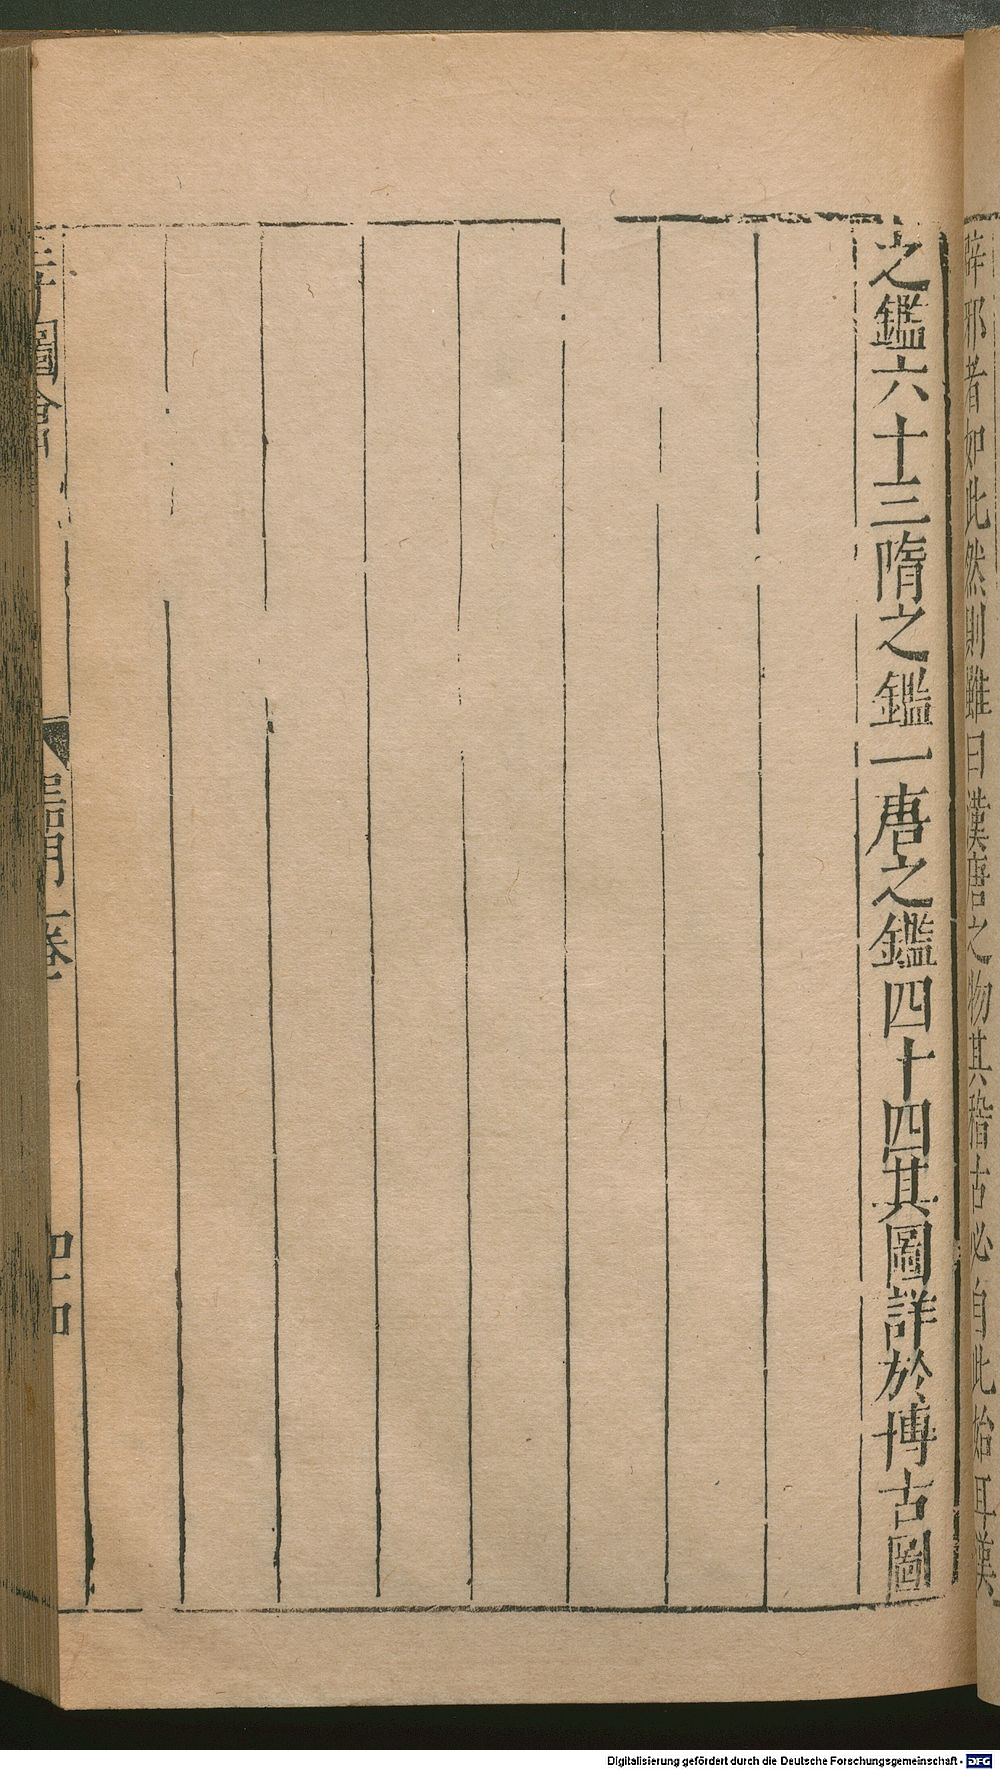 辟邪者如此然則雖曰漢唐之物其稽古必自此始耳漢
之鑑六十三隋之鑑一唐之鑑四十四其圖詳於博古圖
圖會
器用一卷
Digitalisierung gefördert durch die Deutsche Forschungsgemeinschaft - DFG